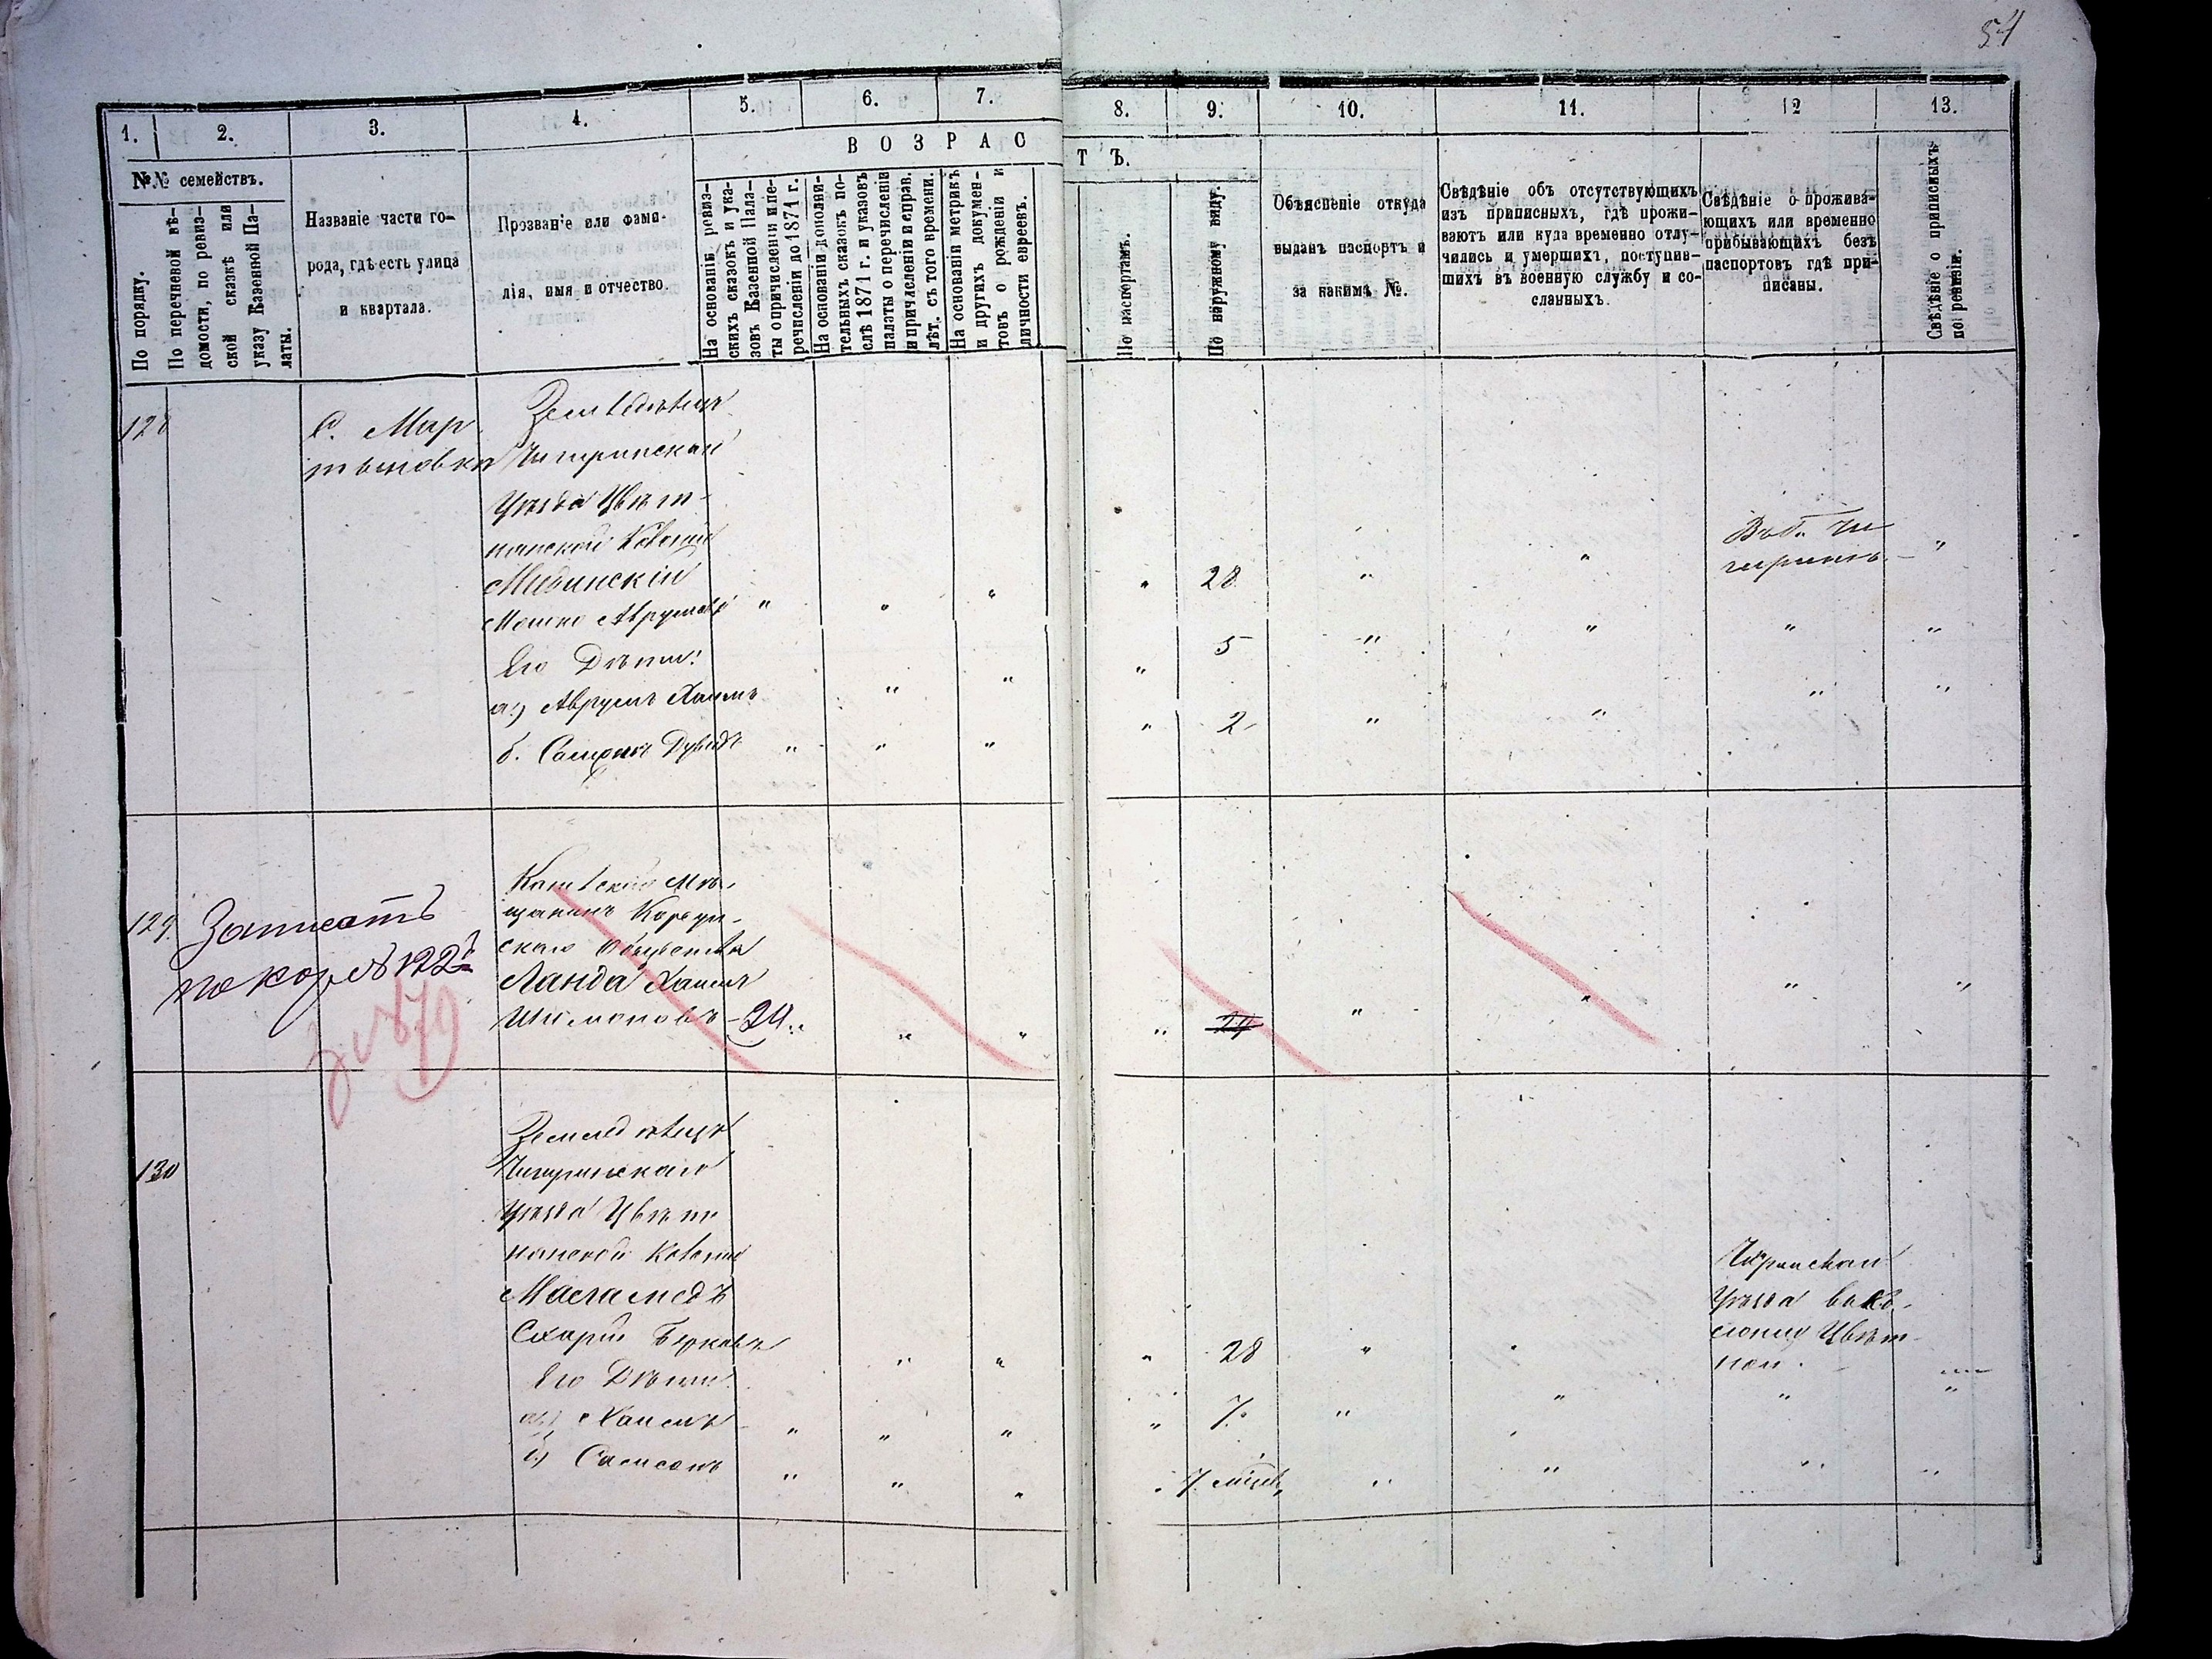 54
1. 2. 3. 4. 5. 6. 7. 8. 9. 10. 11. 12 13.
В О З Р А С Т Ъ.
№№ семействъ.
По порядку.
По перечневой вѣ-
домости, по ревиз-
ской сказкѣ или
указу Казенной Па-
латы.
Названіе части го-
рода, гдѣ есть улица
и квартала.
Прозваніе или фами-
лія, имя и отчество.
На основаніи ревиз-
скихъ сказокъ и ука-
зовъ Казенной Пала-
ты о причисленіи и пе-
речисленіи до 1871 г.
На основаніи дополни-
тельныхъ сказокъ по-
слѣ 1871 г. и указовъ
палаты о перечисленіи
и причисленіи и справ.
лѣт. съ того времени.
На основаніи метрикъ
и другихъ докумен-
товъ о рожденіи и
личности евреевъ.
По паспортамъ.
По наружному виду.
Объясненіе откуда
выданъ паспортъ и
за какимъ №.
Свѣдѣніе объ отсутствующихъ
изъ приписныхъ, гдѣ прожи-
ваютъ или куда временно отлу-
чились и умершихъ, поступив-
шихъ въ военную службу и со-
сланныхъ.
Свѣдѣніе о прожива-
ющихъ или временно
прибывающихъ безъ
паспортовъ гдѣ при-
писаны.
Свѣдѣніе о приписныхъ
по ревизіи.
128
С. Мар
тыновка
Земледѣлецъ
Чигринскаго
Уѣзда Цвѣт-
нянской Колоніи
Мошко Аврумовъ " " " " 28 " "
Чи
гиринѣ. "
Его Дѣти:
а) Аврумъ Хаимъ " " " 5 " " " "
б. Дувидъ " " " " 2 " " " "
129.
Записать
по кор № 122
№ 879
Каневскій Мѣ-
щанинъ Корсун-
скаго Общества
Ланда Хаимъ
Шимоновъ 24 " " " 24 " " " "
130
Земледѣлецъ
Чигринскаго
Уѣзда Цвѣт
нянской Колоніи
Масламедъ
Берковъ " " " 28 " "
Чигринскаго
Уѣзда въ Ко-
лоніи Цвѣт-
ной.
Его Дѣти
а) Хаимъ " " " " 7. " " " "
б) Самсонъ " " " " 7 " " " "